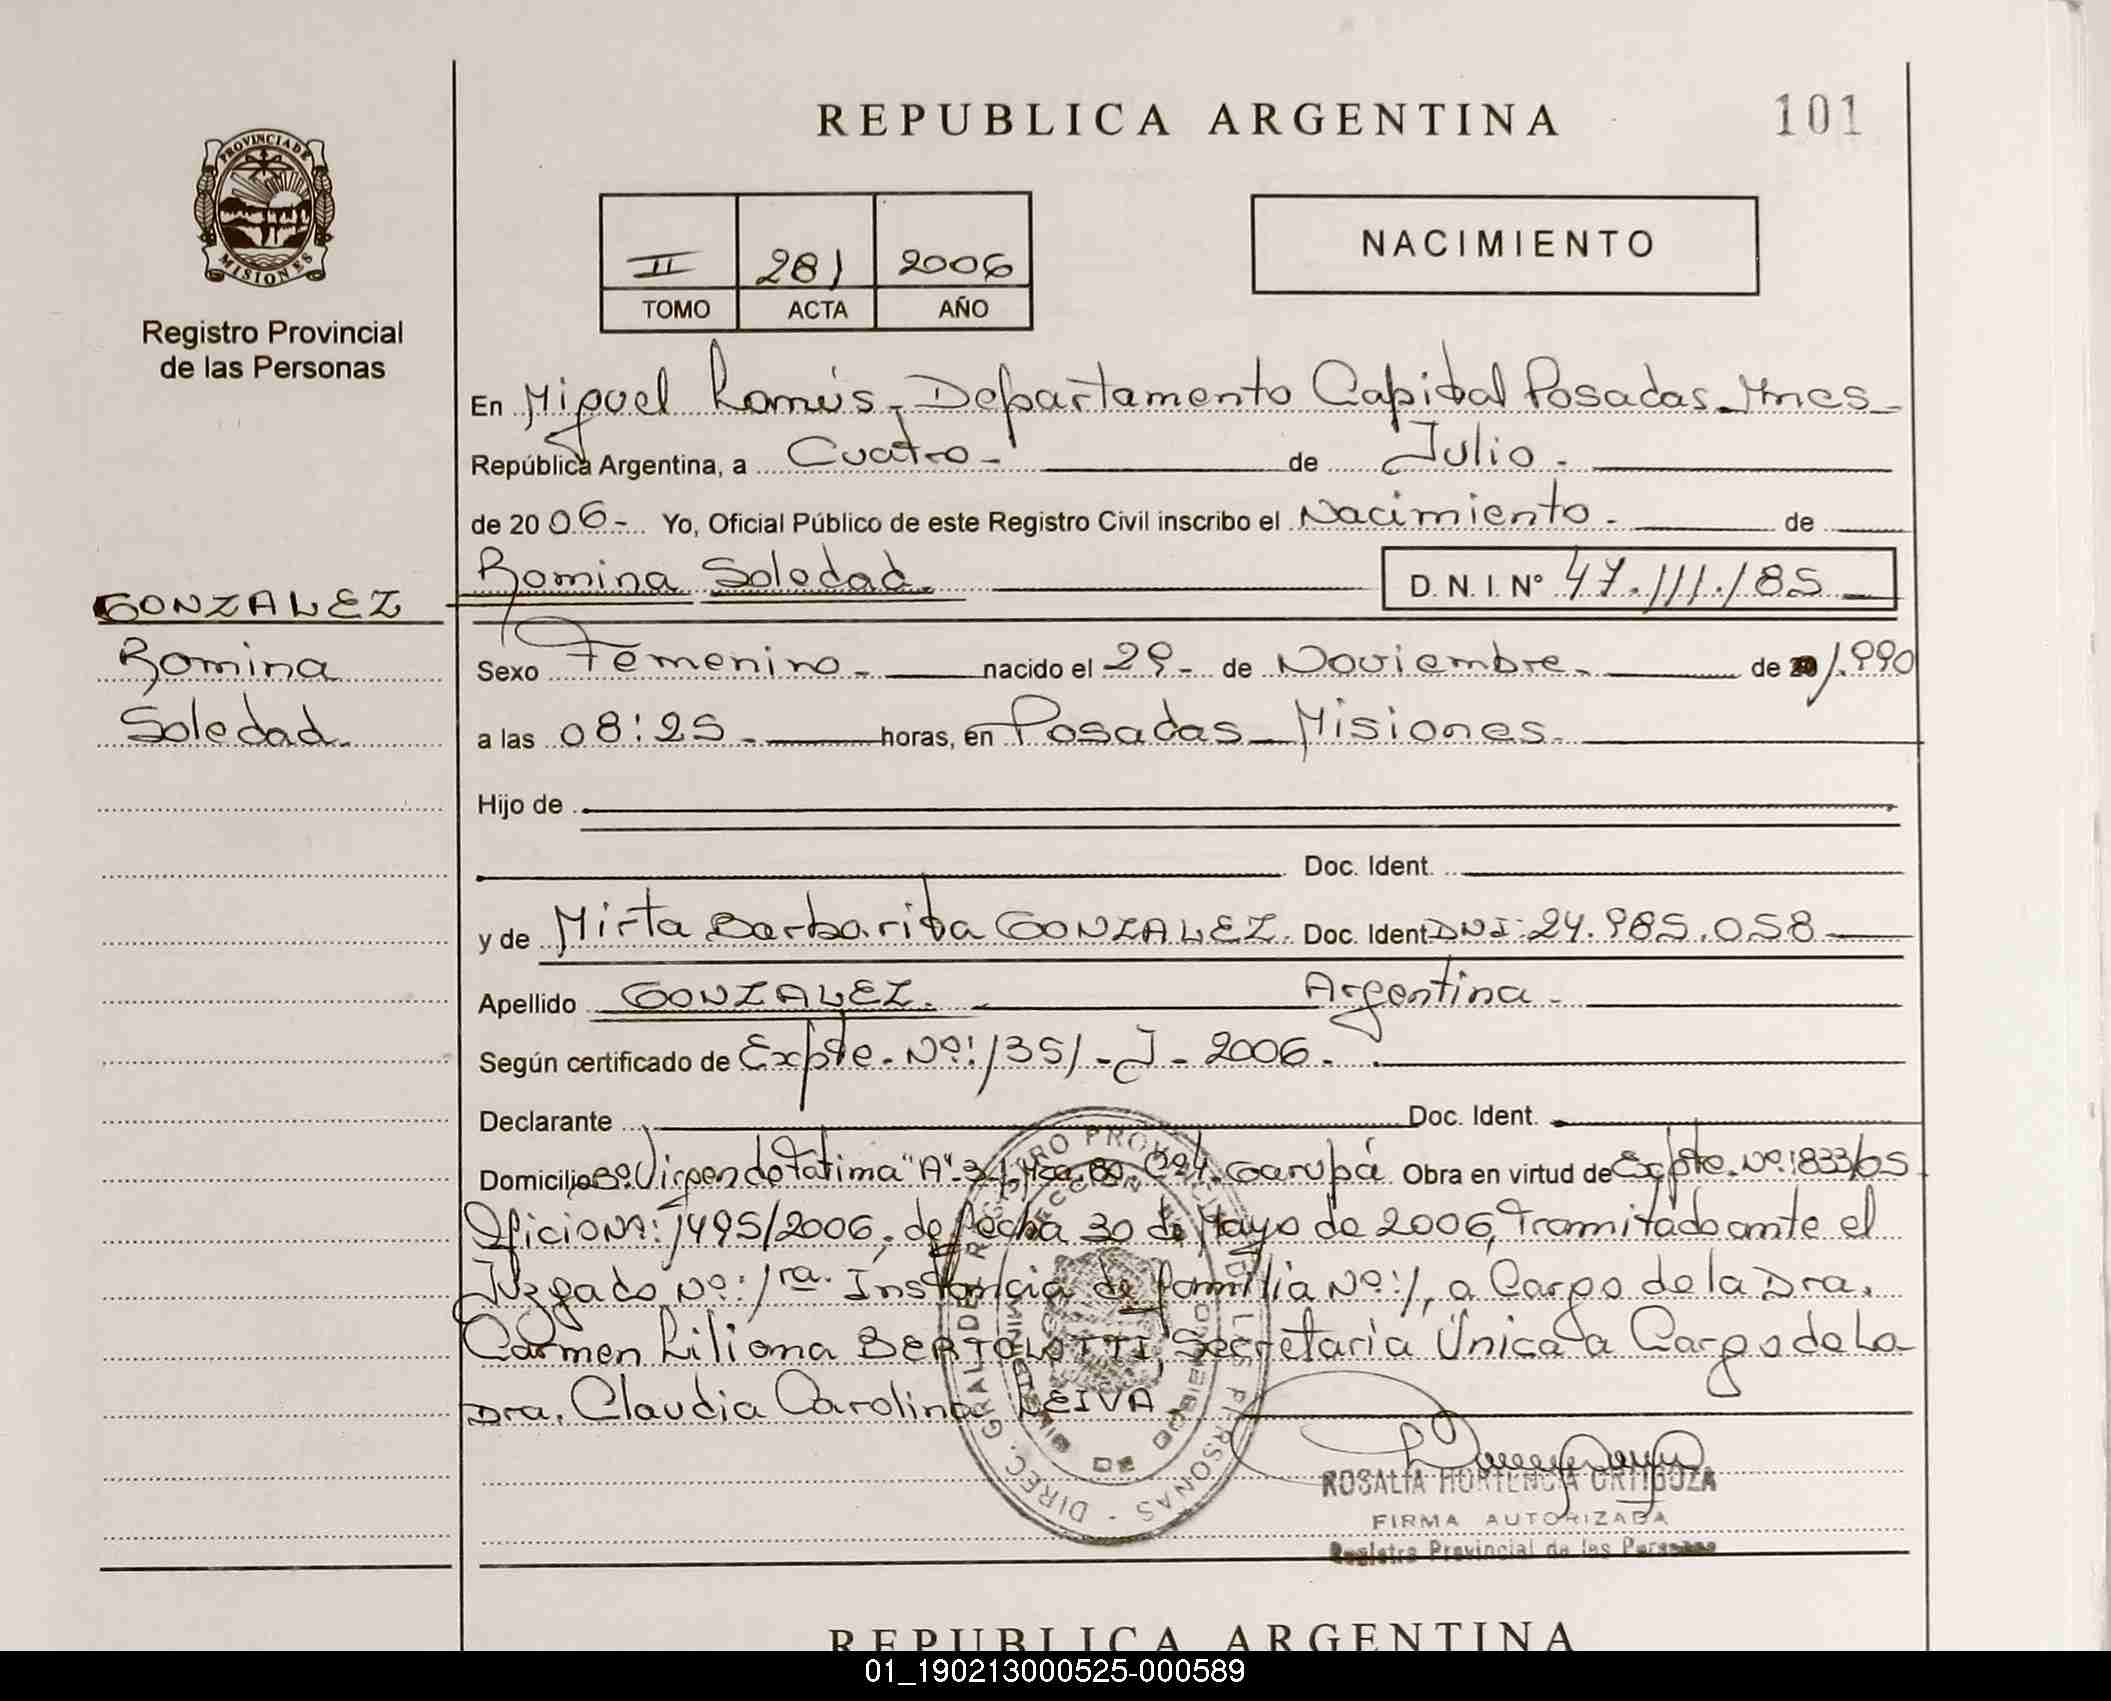 REPUBLICA ARGENTINA
101
PROVINCIA DE
MISIONES
Registro Provincial
de las Personas
II 281 2006
TOMO ACTA AÑO
NACIMIENTO
En Miguel Lanús - Departamento Capital Posadas - Mnes -
República Argentina, a Cuatro - de Julio -
de 20 06 - Yo, Oficial Público de este Registro Civil inscribo el Nacimiento - de
Romina Soledad. D. N. I. Nº 47.111.185
GONZALEZ
Romina
Soledad.
Sexo Femenino - nacido el 29 - de Noviembre - de 1.990
a las 08:25 - horas, en Posadas - Misiones -
Hijo de
Doc. Ident.
y de Mirta Barbarita GONZALEZ. Doc. Ident DNI: 24.985.058
Apellido GONZALEZ. - Argentina -
Según certificado de Expte. Nº: 1351 - J - 2006 -
Declarante Doc. Ident.
Domicilio Bº Virgen de Fatima "A" Garupá Obra en virtud de Expte. Nº: 1833/05
Oficio Nº: 1495/2006, de fecha 30 de Mayo de 2006, Tramitado ante el
Juzgado Nº: 1ra. Instancia de familia Nº: 1, a Cargo de la Dra.
Carmen Liliana BERTOLOTTI, Secretaria Única a Cargo de La
Dra. Claudia Carolina LEIVA
DIREC. GRAL DE REGISTRO PROVINCIAL DE LAS PERSONAS
ROSALIA HORTENCIA ORTIGOZA
FIRMA AUTORIZADA
Registro Provincial de las Personas
REPUBLICA ARGENTINA
01_190213000525-000589